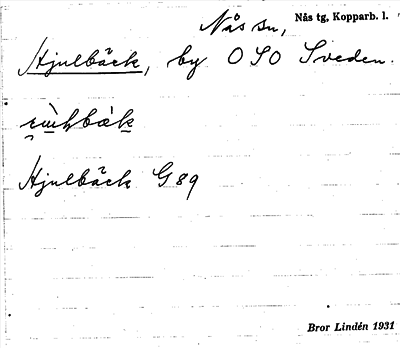 Nås sn, Nås tg, Kopparb. l.
Hjulbäck, by OSO Sveden.
Hjulbäck G 89
Bror Lindén 1931